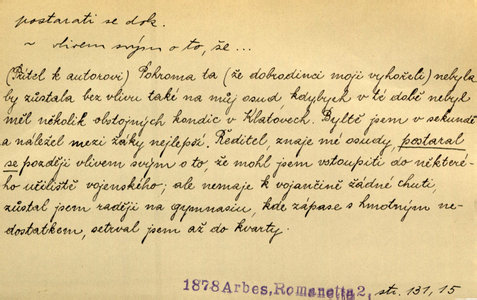 postarati se dok.
~ vlivem svým o to, že...
(Přítel k autorovi) Pohroma ta (že dobrodinci moji vyhořeli) nebyla
by zůstala bez vlivu také na můj osud, kdybych v té době nebyl
měl několik obstojných kondic v Klatovech. Byltě jsem v sekundě
a náležel mezi žáky nejlepší. Ředitel, znaje mé osudy, postaral
se později vlivem svým o to, že mohl jsem vstoupiti do některé-
ho učiliště vojenského; ale nemaje k vojančině žádné chuti,
zůstal jsem raději na gymnasiu, kde zápase s hmotným ne-
dostatkem, setrval jsem až do kvarty.
1878 Arbes, Romanetta 2, str. 131, 15